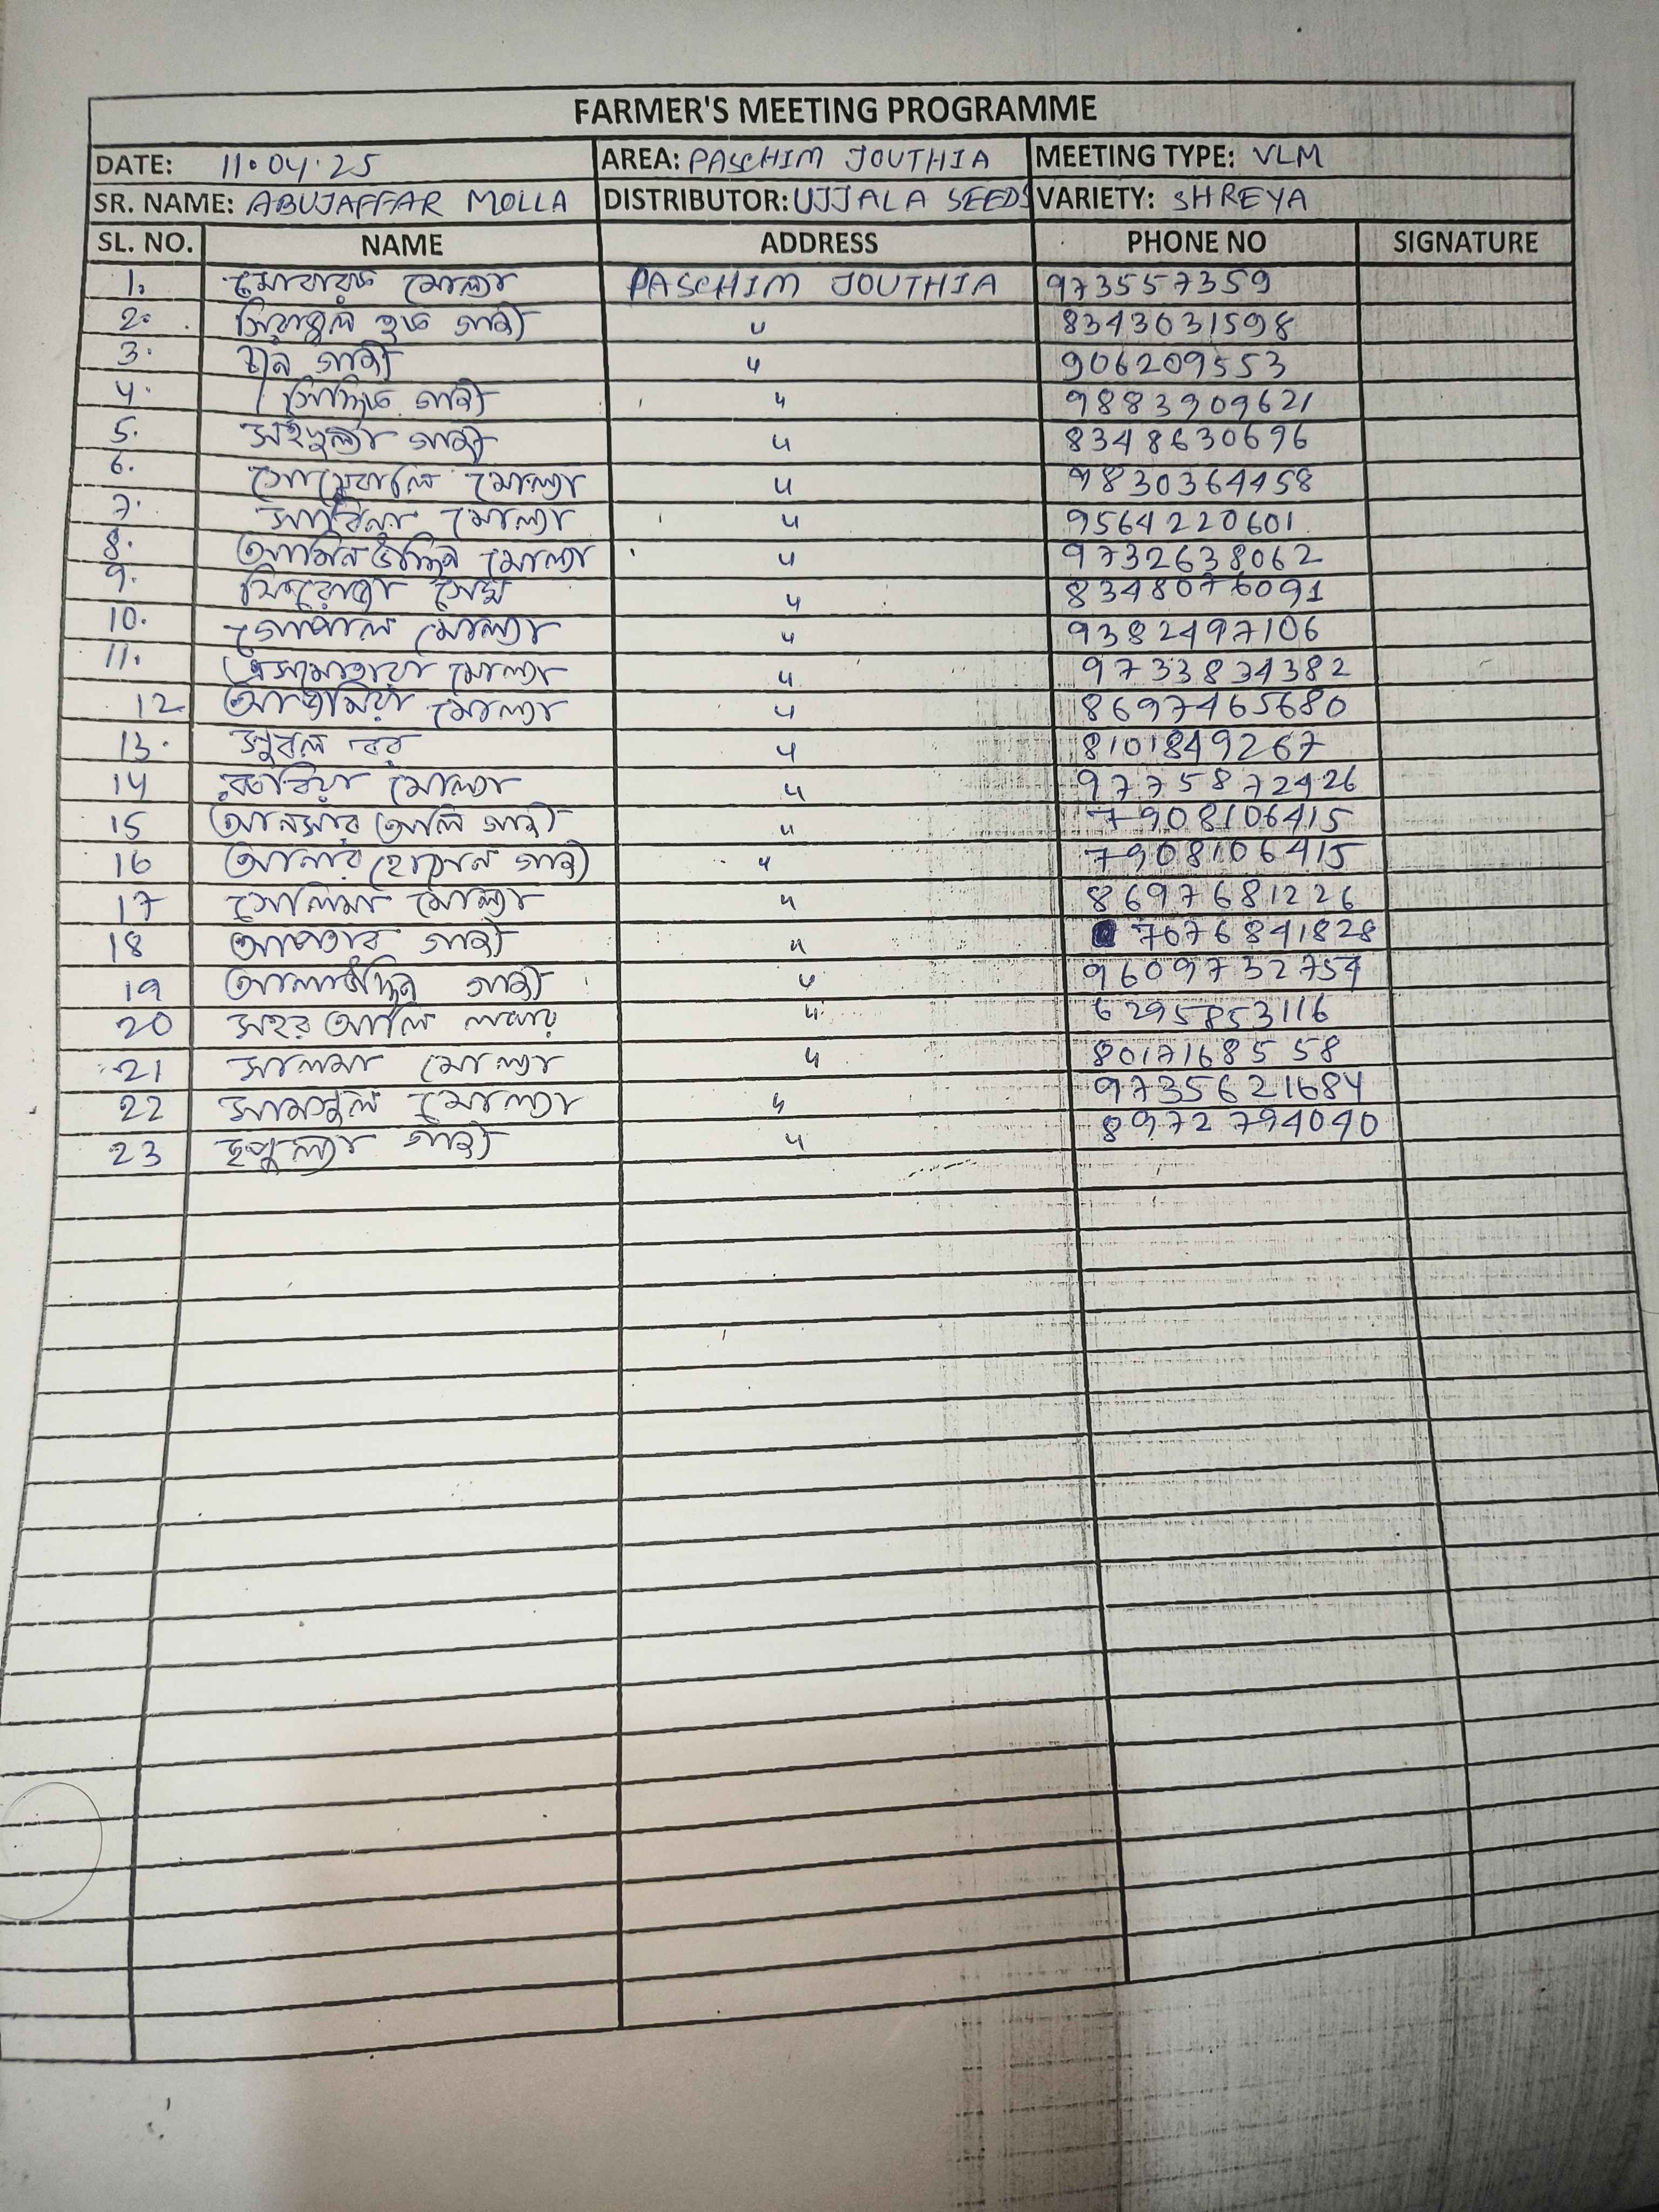 FARMER'S MEETING PROGRAMME
DATE: 11.04.25 AREA: PASCHIM JOUTHIA MEETING TYPE: VLM
SR. NAME: ABUJAFFAR MOLLA DISTRIBUTOR: UJJALA SEEDS VARIETY: SHREYA
SL. NO. NAME ADDRESS PHONE NO SIGNATURE
1. মোল্যা PASCHIM JOUTHIA 973557359
2. গাজী " 8343031598
3. গাজী " 906209553
4. গাজী " 9883909621
5. গাজী " 8348630696
6. মোল্যা " 9830364458
7. মোল্যা " 9564220601
8. আমিনউদ্দিন মোল্যা " 9732638062
9. " 8348076091
10. গোপাল মোল্যা " 9382497106
11. মোল্যা " 9733834382
12 মোল্যা " 8697465680
13. সুবল " 8101849267
14 মোল্যা " 9775872426
15 আনসার আলি গাজী " 7908106415
16 আনার হোসেন গাজী " 7908106415
17 সেলিমা মোল্যা " 8697681226
18 গাজী " 7076841828
19 আলাউদ্দিন গাজী " 9609732754
20 সহর আলি লস্কর " 6295853116
21 সালমা মোল্যা " 8017168558
22 সামসুল মোল্যা " 9735621684
23 গাজী " 8972794040